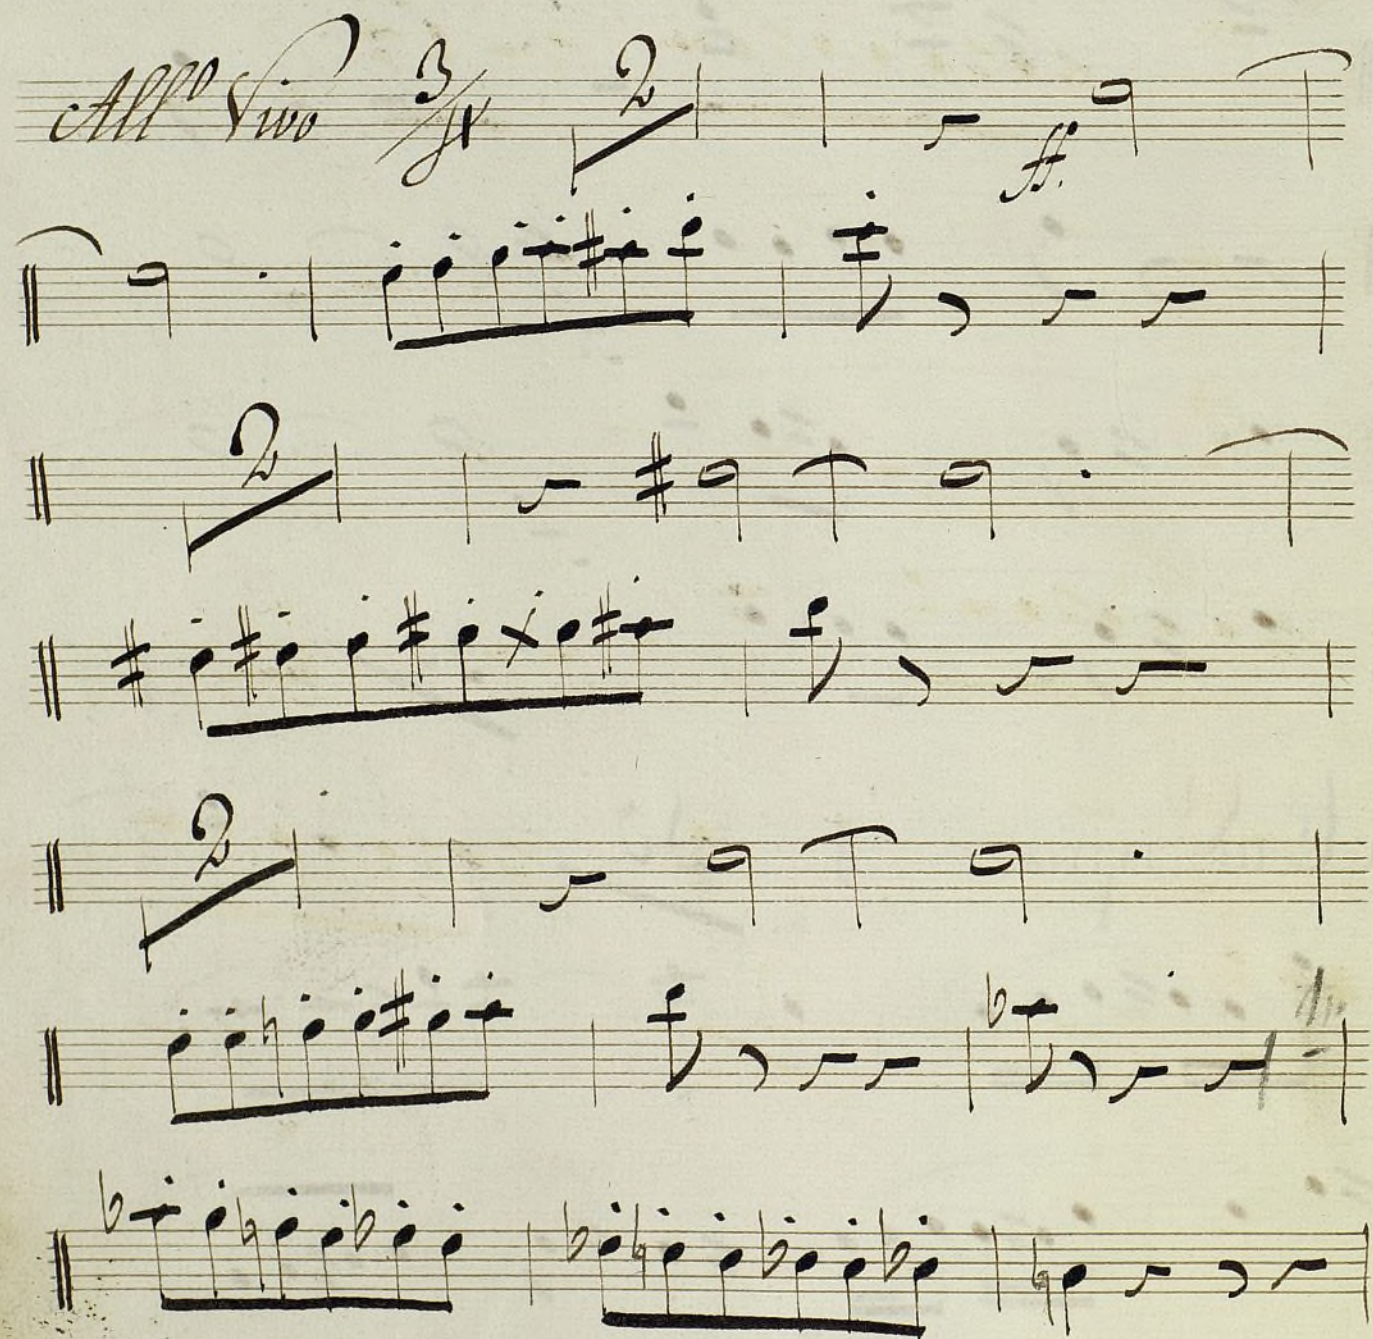 Allo Vivo 3/4 2
ff.
2
2